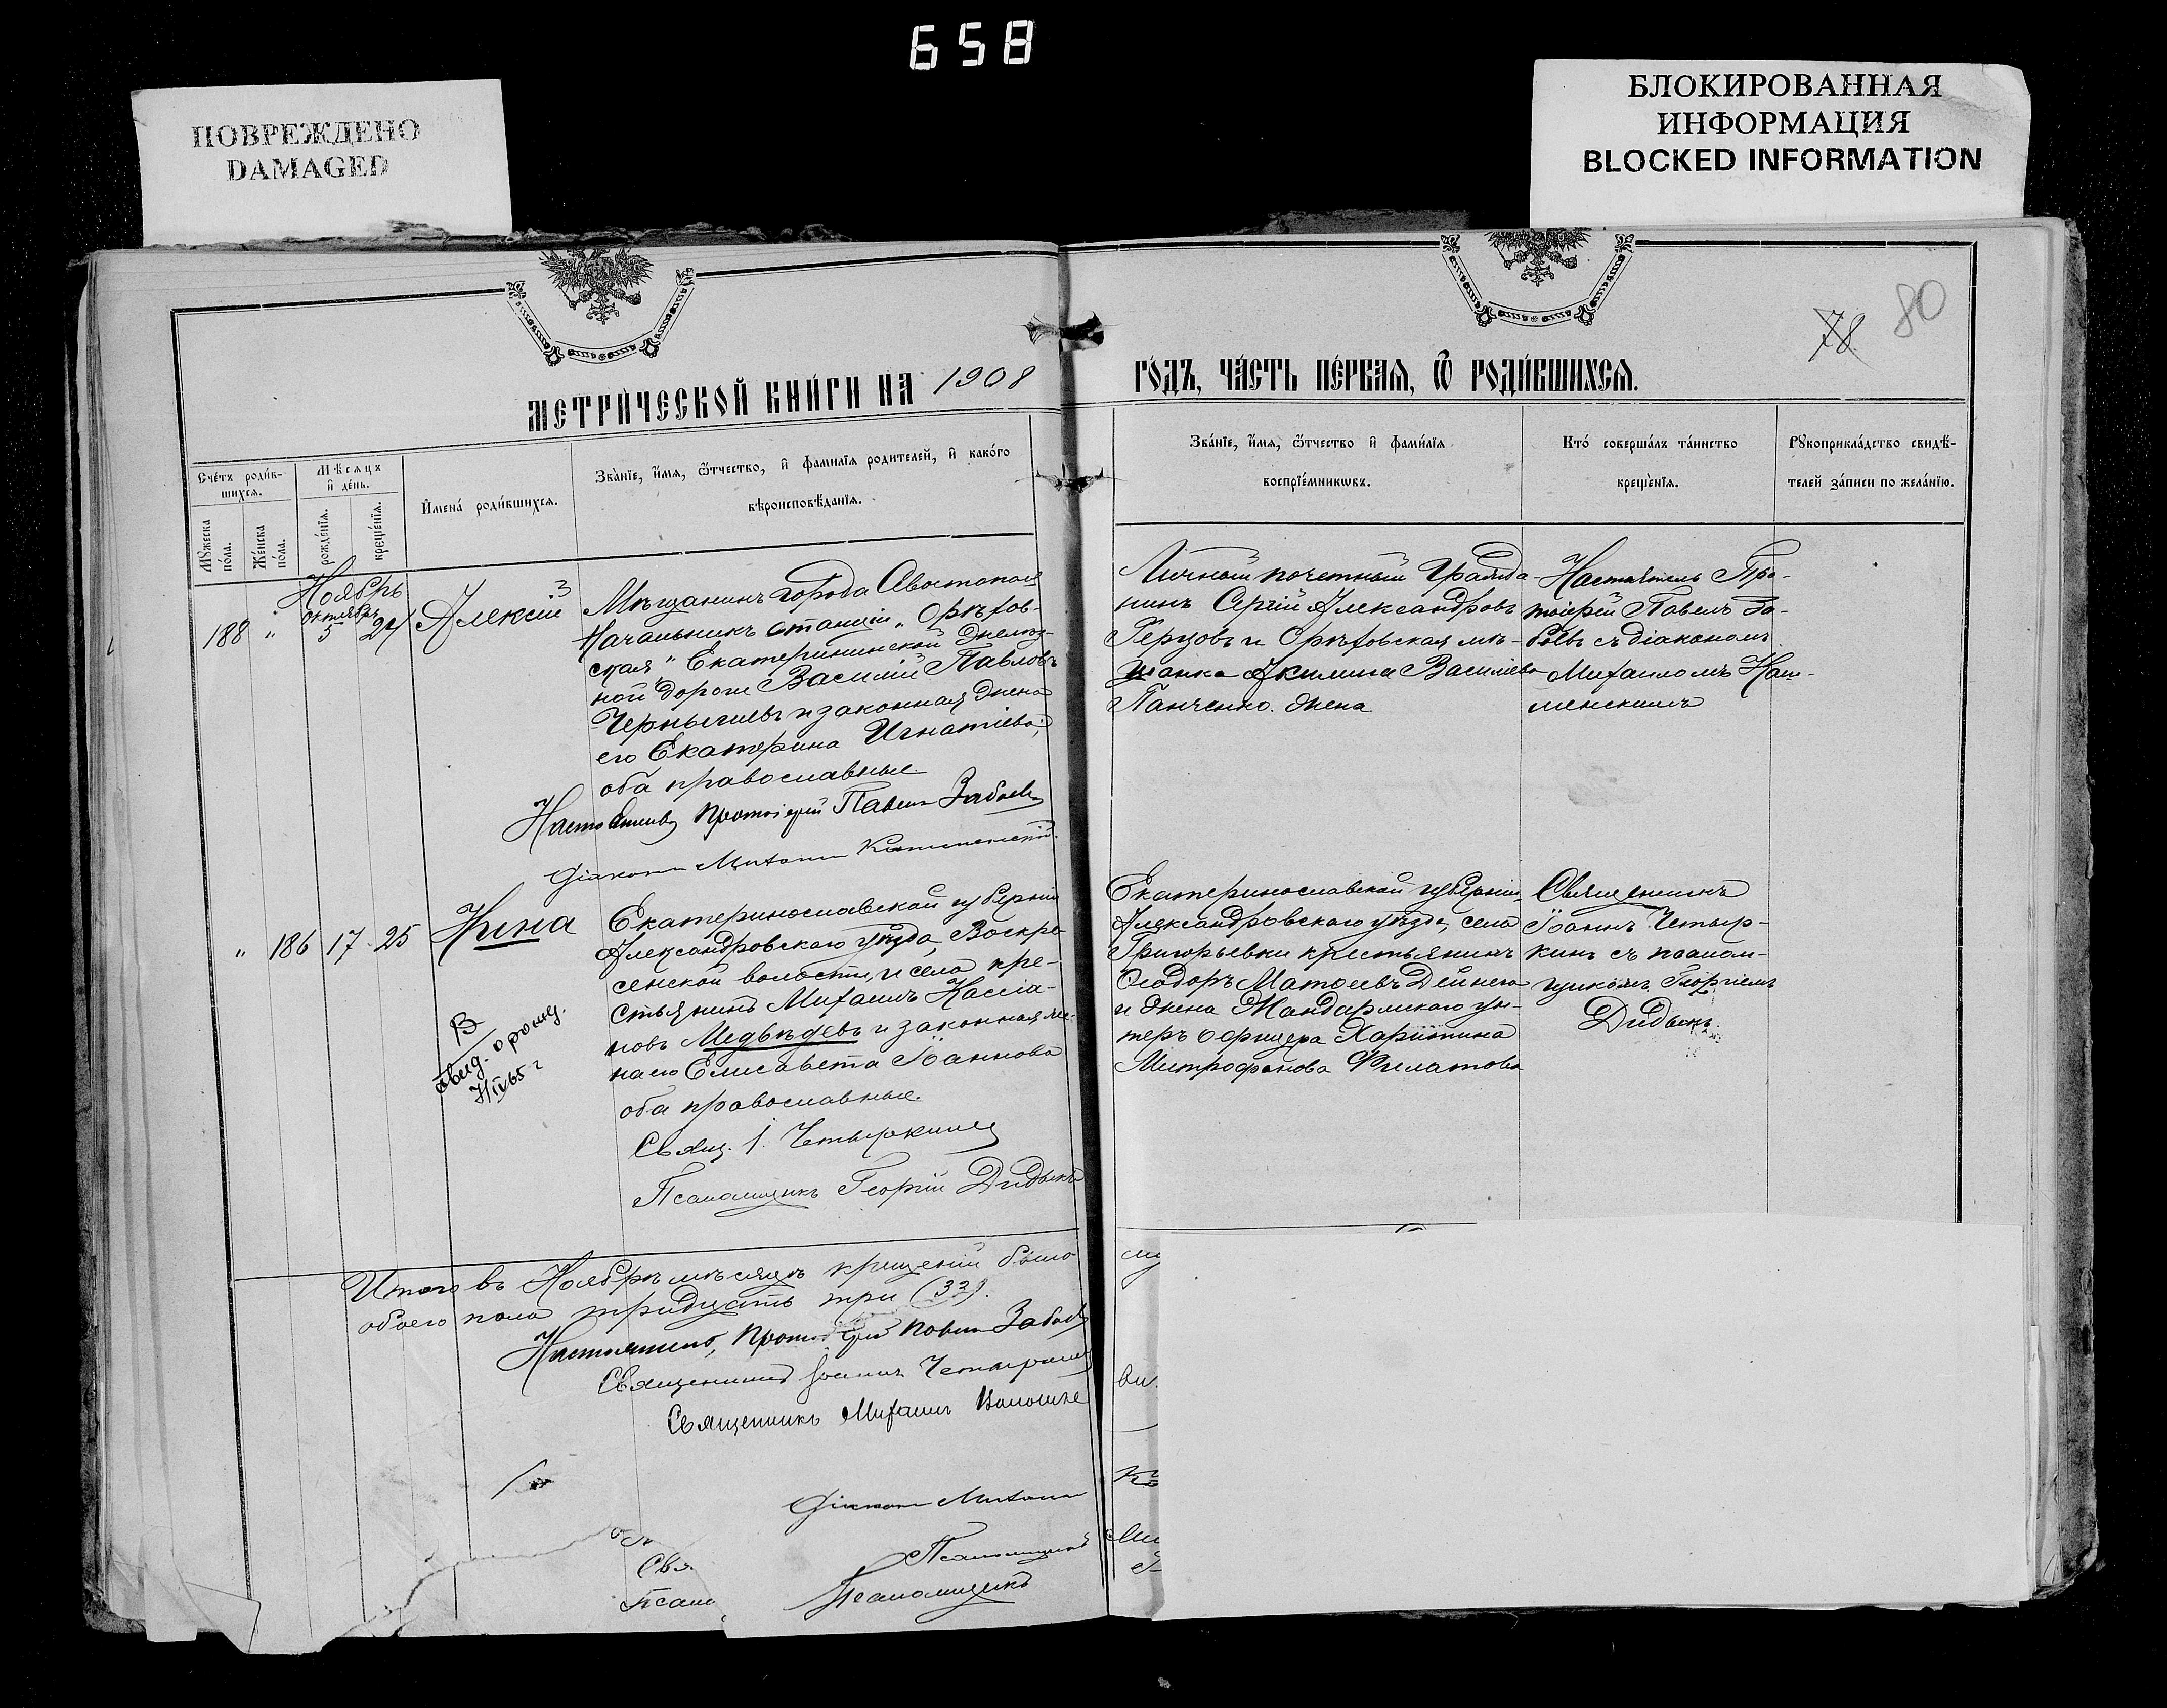 658
ПОВРЕЖДЕНО
DAMAGED
БЛОКИРОВАННАЯ
ИНФОРМАЦИЯ
BLOCKED INFORMATION
78
80
МЕТРИ́ЧЕСКОЙ КНИ́ГИ НА 1908
ГО́ДЪ, ЧА́СТЬ ПЕ́РВАЯ, Ѿ РОДИ́ВШИХСЯ.
Сче́тъ роди́в-
шихся.
Мѣсяцъ
и де́нь.
Мꙋжеска
по́ла.
Же́нска
по́ла.
рожде́нїя.
креще́нїя.
Имена́ роди́вшихся.
Зва́нїе, и́мя, ѻ҆́тчество, и фами́лїя родителей, и како́го
вѣроисповѣ́данїя.
Зва́нїе, и́мя, ѻ҆́тчество и фами́лїя
воспрїе́мникѡвъ.
Кто́ соверша́лъ та́инство
креще́нїя.
Рꙋкоприкла́дство свидѣ́-
телей за́писи по жела́нїю.
Ноябрь
октябрь
188 " 5 24 Алексій
Мѣщанинъ города Севастополя
Начальникъ станціи „Орѣхов-
ская" Екатерининской Желѣз-
ной дороги Василій Павловъ
и законная жена
его Екатерина Игнатіева,
оба православные.
Настоятель Протоіерей Павелъ Забаевъ
Діаконъ Михаилъ Каменскій
Личный почетный гражда-
нинъ Сергій Александровъ
и Орѣховская мѣ-
щанка Акилина Васильева
Панченко. жена
Настоятель Про-
тоіерей Павелъ За-
баевъ съ діакономъ
Михаиломъ Ка-
менскимъ
" 186 17 25 Нина
В
свид. о рожд.
Екатеринославской губерніи
Александровскаго уѣзда, Воскре-
сенской волости, и села кре-
стьянинъ Михаилъ Кассіа-
новъ Медвѣдевъ и законная же-
на его Елисавета Іоаннова
оба православные.
Свящ. І. Четыркинъ
Псаломщикъ Георгій Дидыкъ
Екатеринославской губерніи,
Александровскаго уѣзда, села
Григорьевки крестьянинъ
Ѳеодоръ Матѳеевъ Дейнега
и жена Жандармскаго ун-
теръ офицера Харитина
Митрофанова Филатова
Священникъ
Іоаннъ Четыр-
кинъ съ псалом-
щикомъ Георгіемъ
Дидыкъ
Итого въ Ноябрѣ мѣсяцѣ крещеній было
обоего пола тридцать три (33).
Настоятель, Протоіерей Павелъ Забаевъ
Священникъ Іоаннъ Четыркинъ
Священникъ Михаилъ
Діаконъ Михаилъ
Псаломщикъ
Свя
Псало
Псаломщикъ